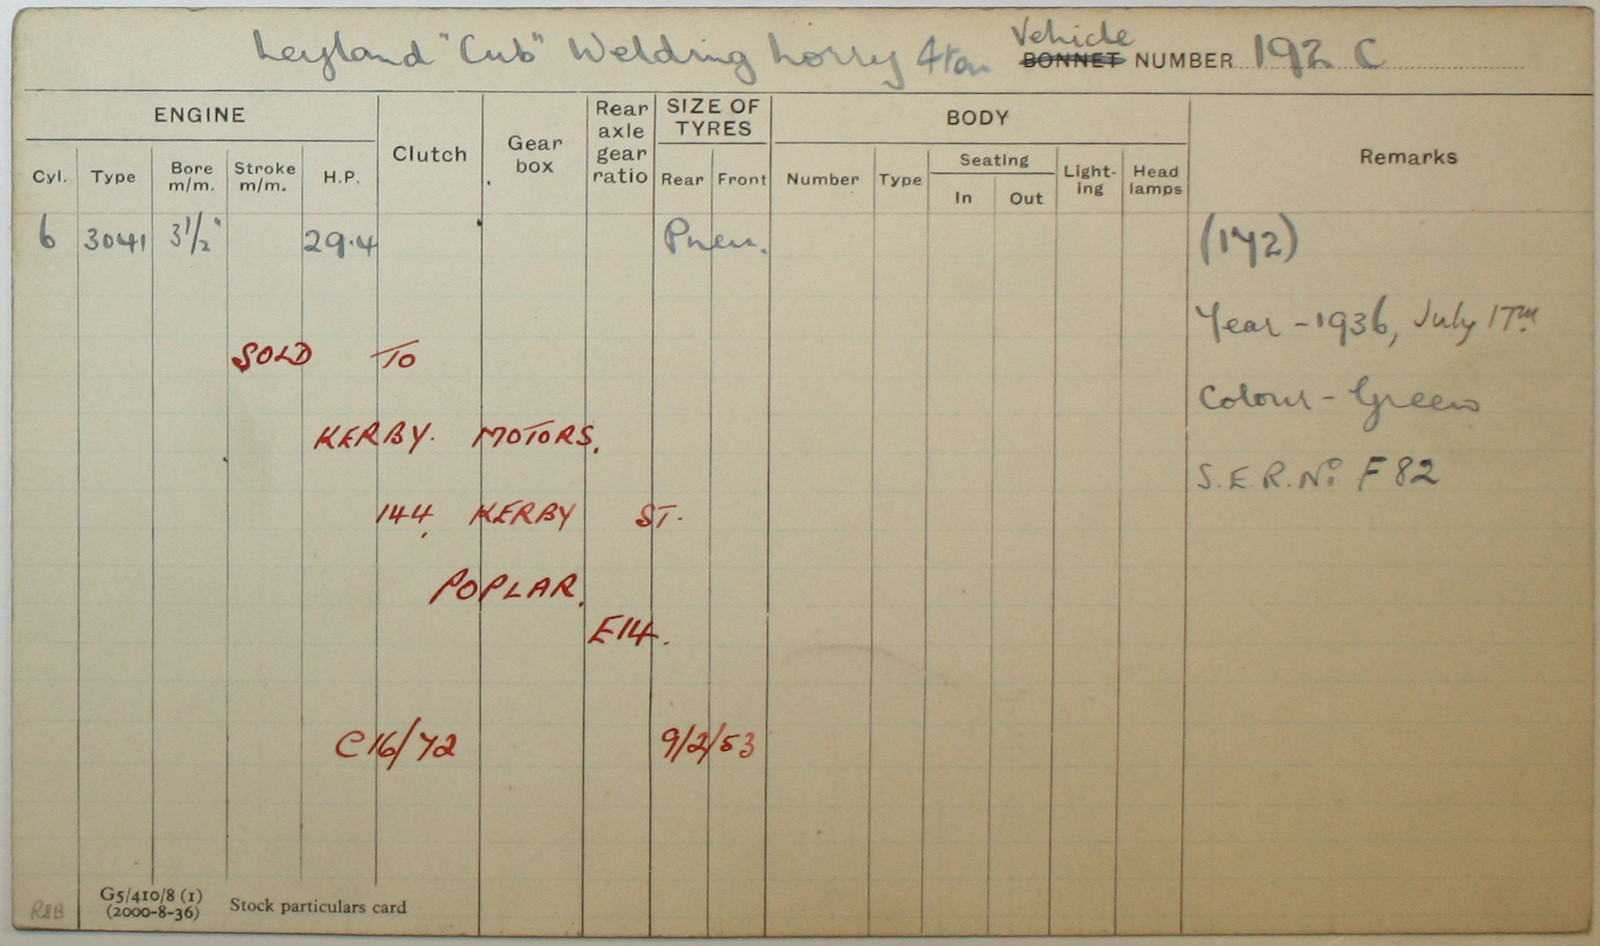 Leyland "Cub" Welding Lorry 4 ton Vehicle BONNET NUMBER 192 C
ENGINE Clutch Gear box Rear axle gear ratio SIZE OF TYRES BODY Remarks
Cyl. Type Bore m/m. Stroke m/m. H.P. Rear Front Number Type Seating In Out Light-ing Head lamps
6 3041 3 1/2" 29.4 Pneu. (172)
Year - 1936, July 17TH
SOLD TO
Colour - Green
KERBY. MOTORS.
S.E.R. No: F 82
144, KERBY ST.
POPLAR.
E14.
C16/72 9/2/53
R&B G5/410/8 (1)
(2000-8-36) Stock particulars card